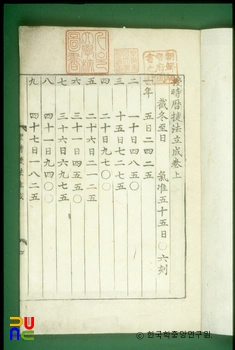 授時曆捷法立成卷上
截冬至日 氣准五十五日〇六刻
一年 五日二四二五
二 一十日四八五〇
三 十五日七二七五
四 二十日九七〇〇
五 二十六日二一二五
六 三十一日四五五〇
七 三十六日六九七五
八 四十一日九四〇〇
九 四十七日一八二五
ⓒ 한국학중앙연구원